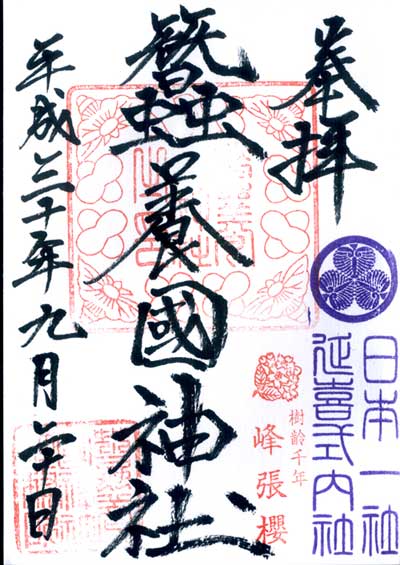 奉拝
日本一社
延喜式内社
樹齢千年
峰張櫻
蠶養國神社
平成二十年九月廿日